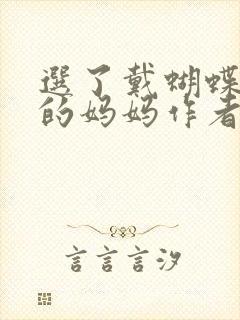 選了戴蝴蝶
的妈妈作者
言言言汐